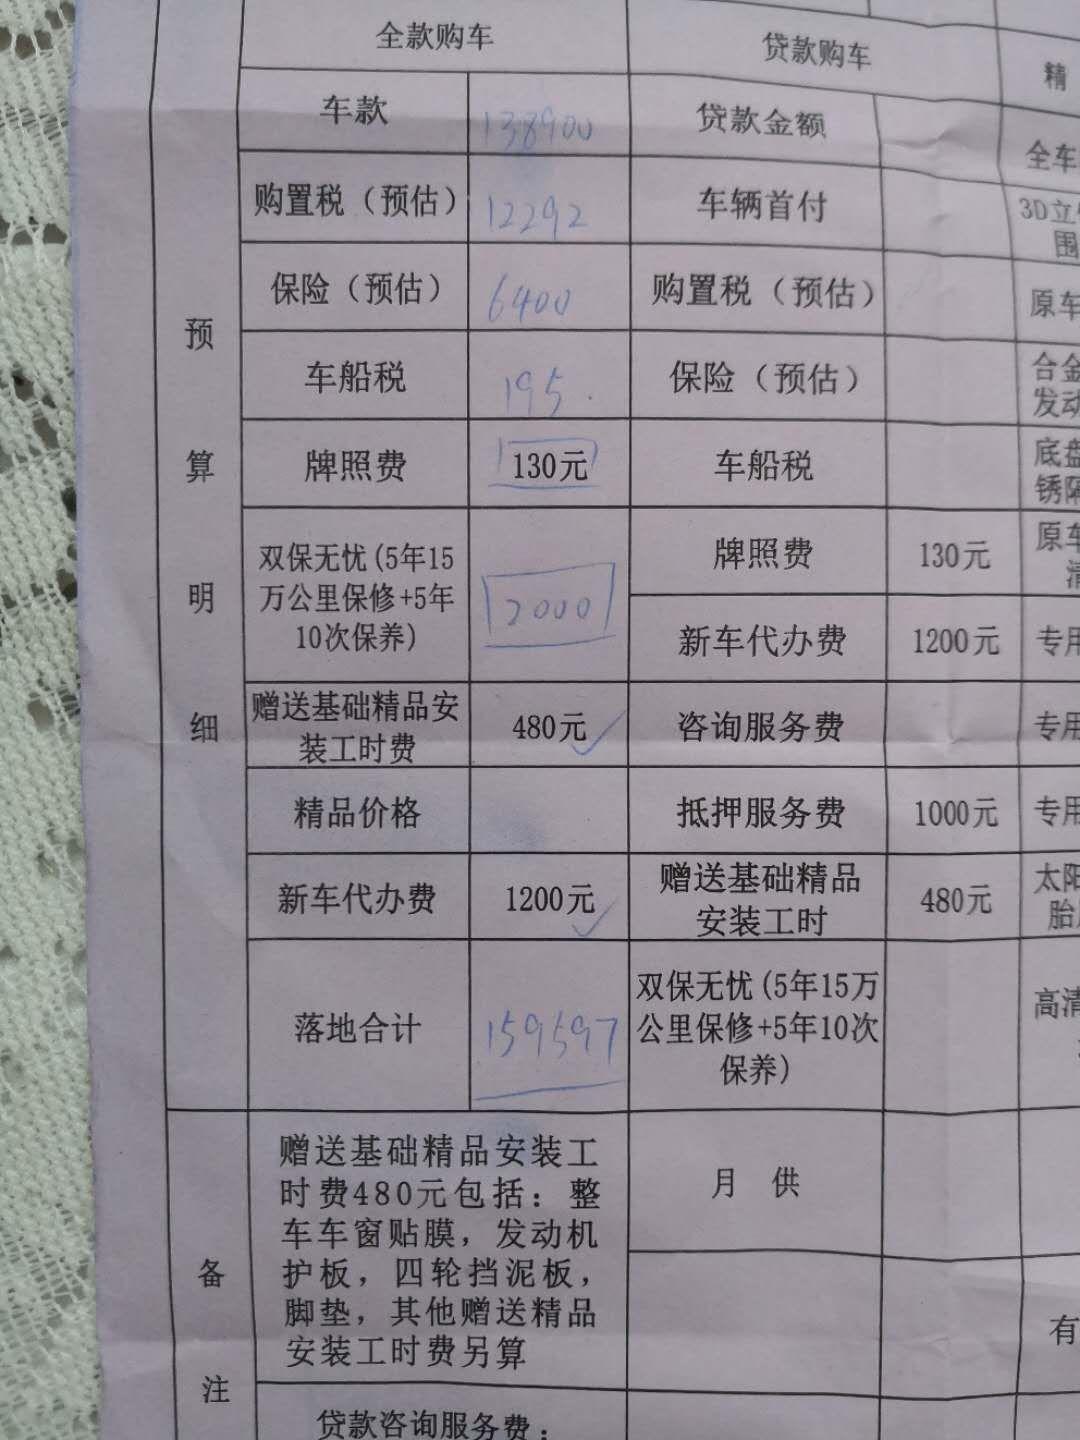 全款购车 贷款购车
精
车款 138900 贷款金额
全车
购置税（预估） 12292 车辆首付
3D立
围
保险（预估） 6400 购置税（预估）
原车
车船税 195. 保险（预估）
合金
发动
牌照费 130元 车船税
底盘
锈隔
双保无忧(5年15
万公里保修+5年
10次保养)
2000
牌照费 130元
原车
清
新车代办费 1200元
专用
赠送基础精品安
装工时费
480元 咨询服务费
专用
精品价格 抵押服务费 1000元
专用
新车代办费 1200元
赠送基础精品
安装工时
480元
太阳
胎
落地合计 159597
双保无忧(5年15万
公里保修+5年10次
保养)
高清
预算明细
赠送基础精品安装工
时费480元包括：整
车车窗贴膜，发动机
护板，四轮挡泥板，
脚垫，其他赠送精品
安装工时费另算
月 供
有
备注
贷款咨询服务费：